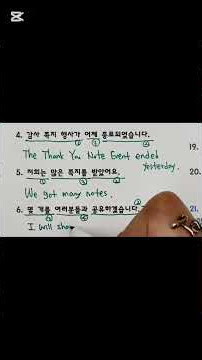 CapCut
4. 감사 쪽지 행사가 어제 종료되었습니다.
19.
The Thank You Note Event ended
yesterday.
5. 저희는 많은 쪽지를 받았어요.
20.
We got many notes.
6. 몇 개를 여러분들과 공유하겠습니다.
21.
I will sho